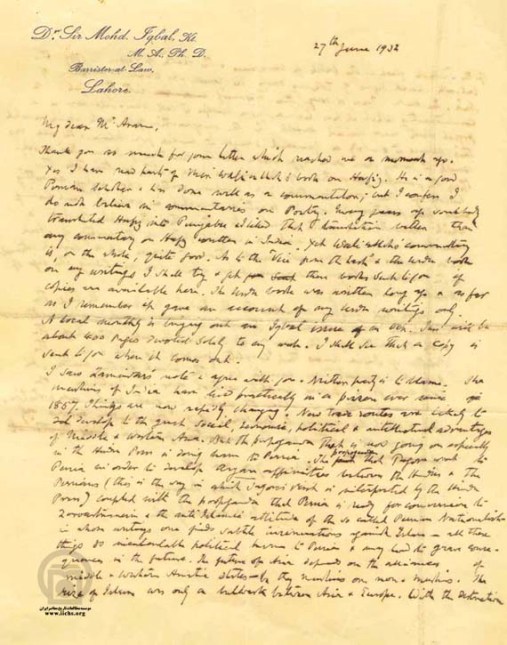 Dr. Sir Mohd. Iqbal, Kt
M. A., Ph. D.
Barrister-at-Law,
Lahore.
27th June 1932
My dear Mr
Thank you so much for your letter which reached me a moment ago.
Yes I have read part of book on Hafiz. He is a good
Persian scholar & has done well as a commentator; but I confess I
do not believe in commentaries on Poetry. Many years ago somebody
translated Hafiz into Punjabi & I liked that translation better than
any commentary on Hafiz written in India. Yet commentary
is, on the whole, quite good. As to the & the Urdu book
on my writings I shall try & get them sent to you if
copies are available here. The Urdu book was written long ago & as far
as I remember it gave an account of my Urdu writings only.
A local monthly is bringing out an Iqbal issue This will be
about pages devoted solely to my work. I shall see that a copy is
sent to you when it comes out.
I saw note & agree with you. Neither party is to blame. The
Muslims of India have lived practically in a prison ever since
1857. Things are now rapidly changing. New trade routes are likely to
develop to the great social, economic, political & intellectual advantages
of Middle & Western Asia. But the propaganda that is now going on especially
in the Hindu Press is doing harm to Persia. The propaganda that Tagore went to
Persia in order to develop Aryan affinities between the Hindus & the
Persians (this is the way in which Tagore's visit is interpreted by the Hindu
Press) coupled with the propaganda that Persia is ready for conversion to
Zoroastrianism & the anti-Islamic attitude of the so called Persian Nationalists
in whose writings one finds subtle insinuations against Islam - all these
things do incalculable political harm to Persia & may lead to grave conse-
quences in the future. The future of Asia depends on the alliances of
Middle & Western states be they Muslims or non-Muslims. The
rise of Islam was only a bulwark between Asia & Europe. With the destruction
www.iichs.org